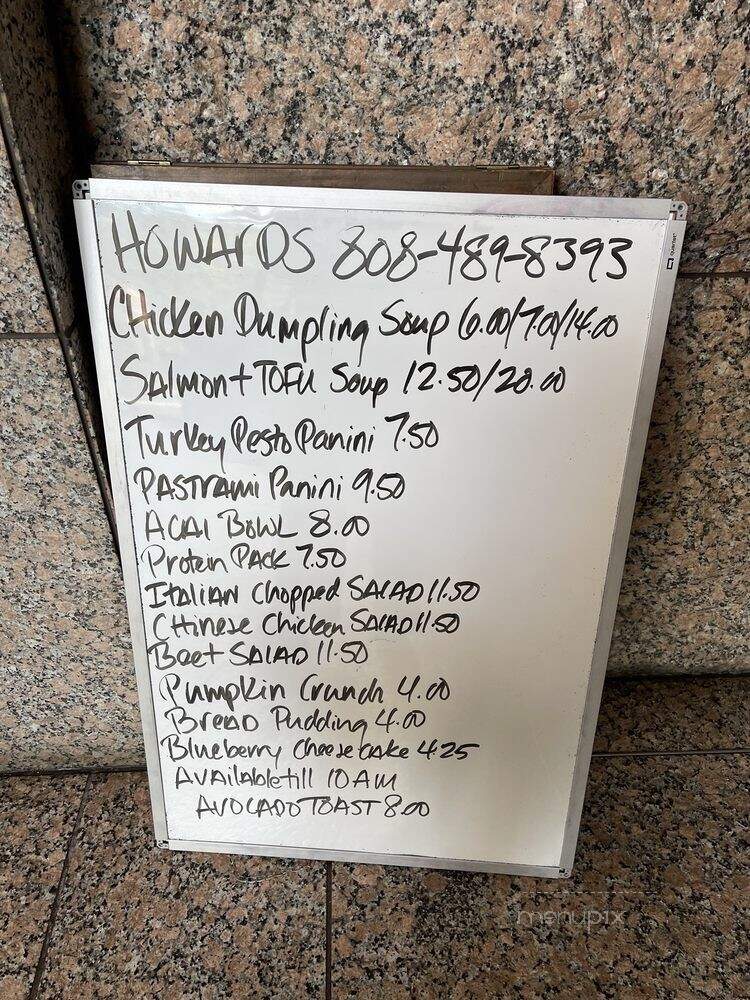 HOWARDS 808-489-8393
Chicken Dumpling Soup 6.00/7.00/14.00
Salmon + TOFU Soup 12.50/20.00
Turkey Pesto Panini 7.50
PASTRAMI Panini 9.50
ACAI BOWL 8.00
Protein PACK 7.50
ITALIAN Chopped SALAD 11.50
CHinese Chicken SALAD 11.50
Beet SALAD 11.50
Pumpkin Crunch 4.00
BreAD Pudding 4.00
Blueberry Cheesecake 4.25
AVAilable till 10 AM
AVOCADO TOAST 8.00
menupix